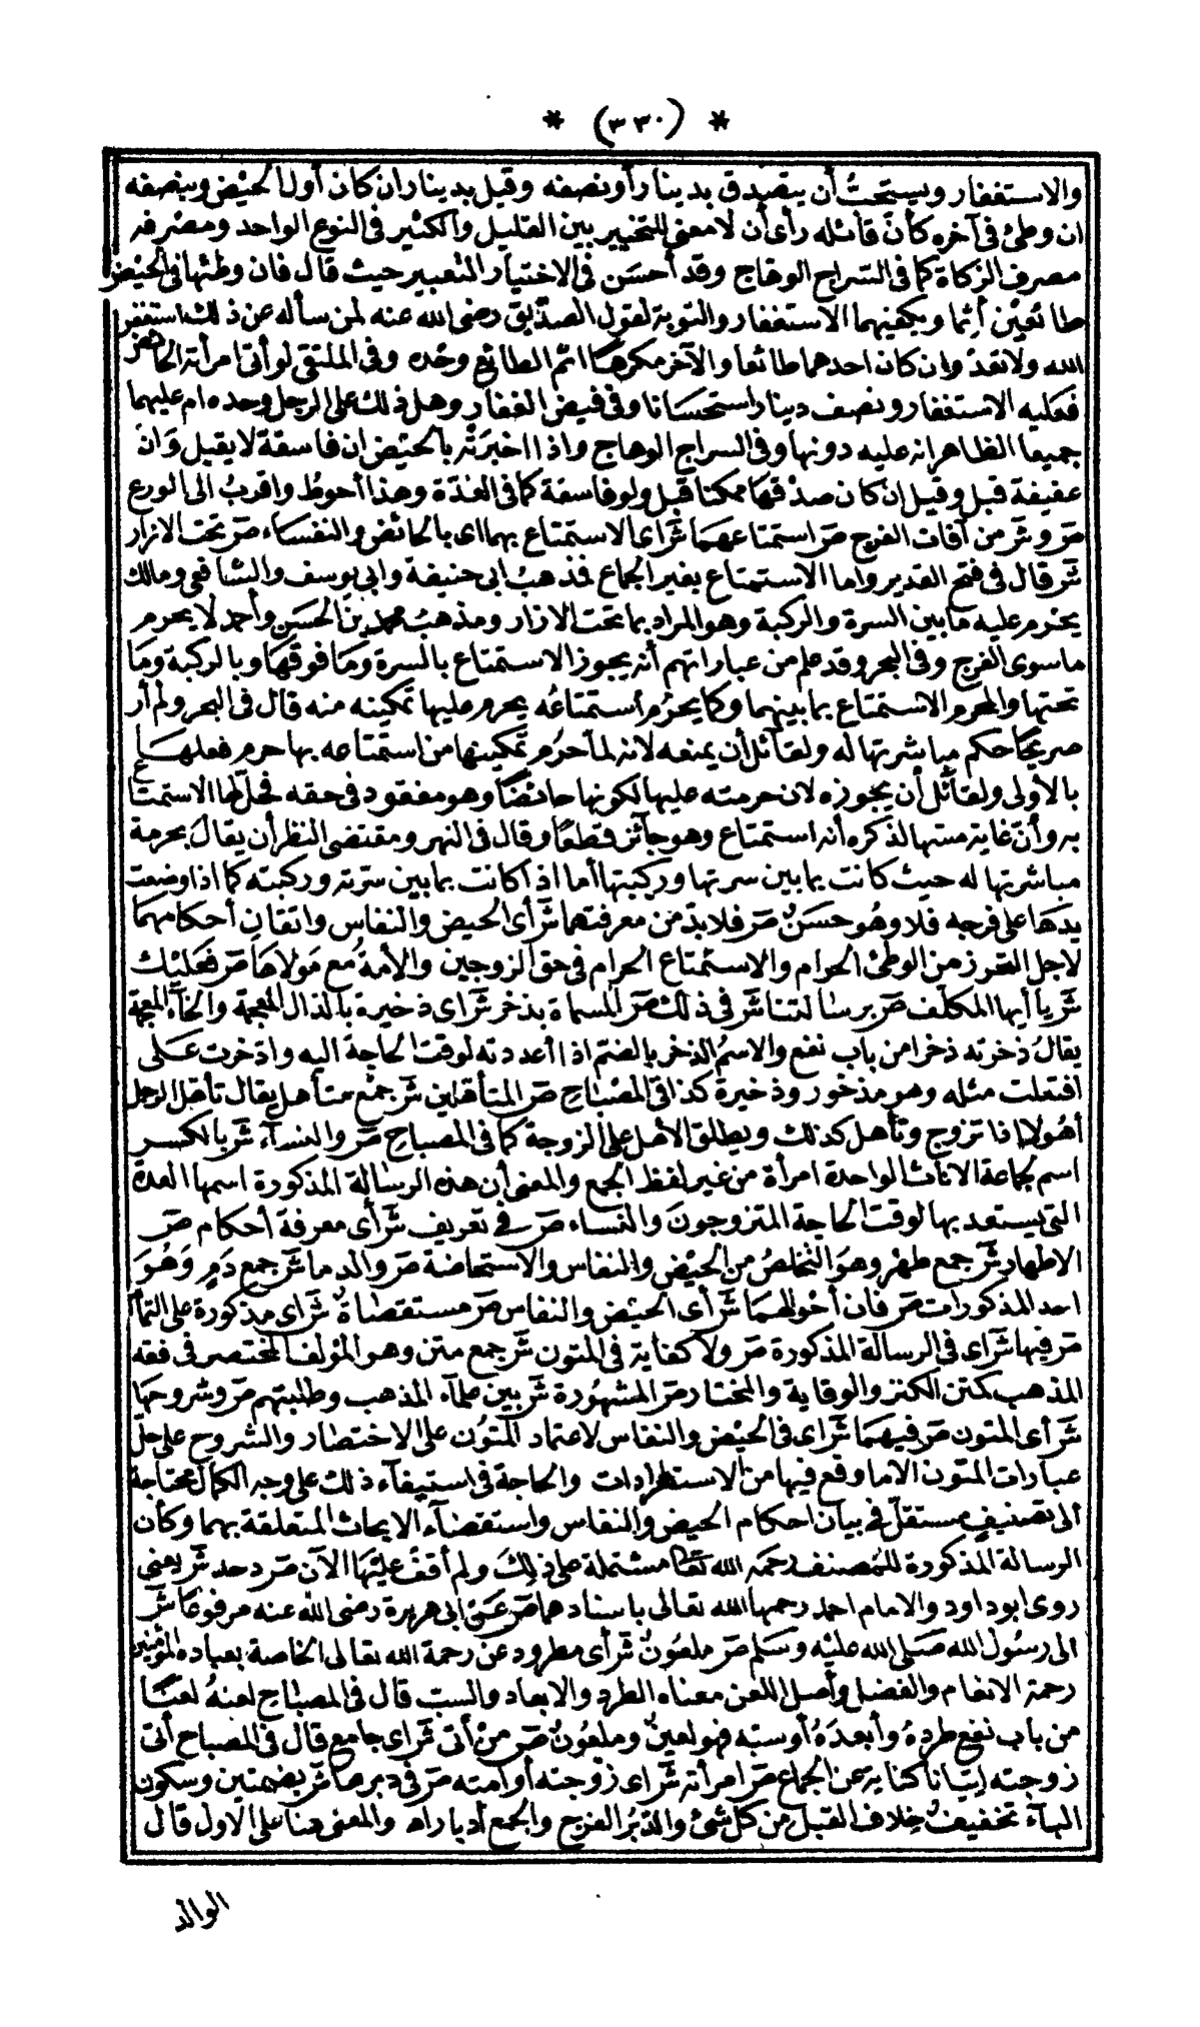 * (٣٣٠) *
والاستغفار ويستحبُّ أن يتصدق بدينار أو نصفه وقيل بدينار ان كان أول الحيض وبنصفه
ان وطئ فى آخره كأن قائله رأى أن لا معنى للتخيير بين القليل والكثير فى النوع الواحد ومصرفه
مصرف الزكاة كما فى السراج الوهاج وقد أحسن فى الاختيار التعبير حيث قال فان وطئها فى الحيض
طائعين أثما ويكفيهما الاستغفار والتوبة لقول الصدّيق رضى الله عنه لمن سأله عن ذلك استغفر
الله ولا تعد وان كان احدهما طائعا والآخر مكرها اثم الطائع وحده وفى الملتقى لو أتى امرأته الحائض
فعليه الاستغفار ونصف دينار استحسانا وفى فيض الغفار وهل ذلك على الرجل وحده ام عليهما
جميعا الظاهر انه عليه دونها وفى السراج الوهاج واذا اخبرته بالحيض ان فاسقة لا يقبل وان
عفيفة قبل وقيل ان كان صدقها ممكنا قبل ولو فاسقة كما فى العدّة وهذا أحوط واقرب الى الورع
صر و شر من آفات الفرج صر استمتاعهما شر اى الاستمتاع بهما اى بالحائض والنفساء صر تحت الازار
شر قال فى فتح القدير واما الاستمتاع بغير الجماع فذهب ابى حنيفة وابى يوسف والشافعى ومالك
يحرم عليه ما بين السرة والركبة وهو المراد بما تحت الازار ومذهب محمد بن الحسن وأحمد لا يحرم
ما سوى الفرج وفى البحر وقد علم من عباراتهم أنه يجوز الاستمتاع بالسرة وما فوقها وبالركبة وما
تحتها والمحرم الاستمتاع بما بينهما وكما يحرم استمتاعه يحرم عليها تمكينه منه قال فى البحر ولم أر
صريحا حكم مباشرتها له ولقائل أن يمنعه لانه لما حرم تمكينها من استمتاعه بها حرم فعلها
بالأولى ولقائل أن يجوزه لان حرمته عليها لكونها حائضا وهو مفقود فى حقه فحلّ لها الاستمتاع
به وأنّ غاية مسّها لذكره أنه استمتاع وهو جائز قطعا وقال فى النهر ومقتضى النظر أن يقال بحرمة
مباشرتها له حيث كانت بما بين سرتها وركبتها أما اذا كانت بما بين سرته وركبته كما اذا وضعت
يدها على فرجه فلا وهو حسن صر فلا بدّ من معرفتهما شر أى الحيض والنفاس واتقان أحكامهما
لاجل التحرز من الوطئ الحرام والاستمتاع الحرام فى حق الزوجين والأمة مع مولاها صر فعليك
شر يا أيها المكلف صر برسالتنا شر فى ذلك صر المسماة بذخر شر اى ذخيرة بالذال المعجمة والخاء المعجمة
يقال ذخرته ذخرا من باب نفع والاسم الذخر بالضم اذا أعددته لوقت الحاجة اليه وادّخرت على
افتعلت مثله وهو مذخور وذخيرة كذا فى المصباح صر المتأهلين شر جمع متأهل يقال تأهل الرجل
أهولا اذا تزوج وتأهل كذلك ويطلق الاهل على الزوجة كما فى المصباح صر والنساء شر بالكسر
اسم لجماعة الاناث الواحدة امرأة من غير لفظ الجمع والمعنى أن هذه الرسالة المذكورة اسمها العدة
التى يستعد بها لوقت الحاجة المتزوجون والنساء صر فى تعريف شر أى معرفة أحكام صر
الاطهار شر جمع طهر وهو التخلص من الحيض والنفاس والاستحاضة صر والدما شر جمع دم وهو
احد المذكورات صر فان أحوالهما شر أى الحيض والنفاس صر مستقصاة شر اى مذكورة على التمام
صر فيها شر اى فى الرسالة المذكورة صر ولا كفاية فى المتون شر جمع متن وهو المؤلف المختصر فى فقه
المذهب كمتن الكنز والوقاية والمختار صر المشهورة شر بين علماء المذهب وطلبتهم صر وشروحها
شر أى المتون صر فيهما شر اى فى الحيض والنفاس لاعتماد المتون على الاختصار والشروح على حلّ
عبارات المتون الا ما وقع فيها من الاستطرادات والحاجة فى استيفاء ذلك على وجه الكمال محتاجة
الى تصنيف مستقلّ فى بيان احكام الحيض والنفاس واستقصاء الابحاث المتعلقة بهما وكأن
الرسالة المذكورة للمصنف رحمه الله تعالى مشتملة على ذلك ولم أقف عليها الآن صر د حد شر يعنى
روى ابو داود والامام احمد رحمهما الله تعالى باسنادهما صر عن ابى هريرة رضى الله عنه مرفوعا شر
الى رسول الله صلى الله عليه وسلم صر ملعون شر أى مطرود عن رحمة الله تعالى الخاصة بعباده المؤمنين
رحمة الانعام والفضل وأصل اللعن معناه الطرد والابعاد والسبّ قال فى المصباح لعنه لعنا
من باب نفع طرده وأبعده أو سبّه فهو لعين وملعون صر من أتى شر اى جامع قال فى المصباح أتى
زوجته إتيانا كناية عن الجماع صر امرأته شر اى زوجته أو امته صر فى دبرها شر بضمتين وسكون
الباء تخفيف خلاف القبل من كل شئ والدبُر الفرج والجمع أدبار اه والمعنى هنا على الاول قال
الوالد